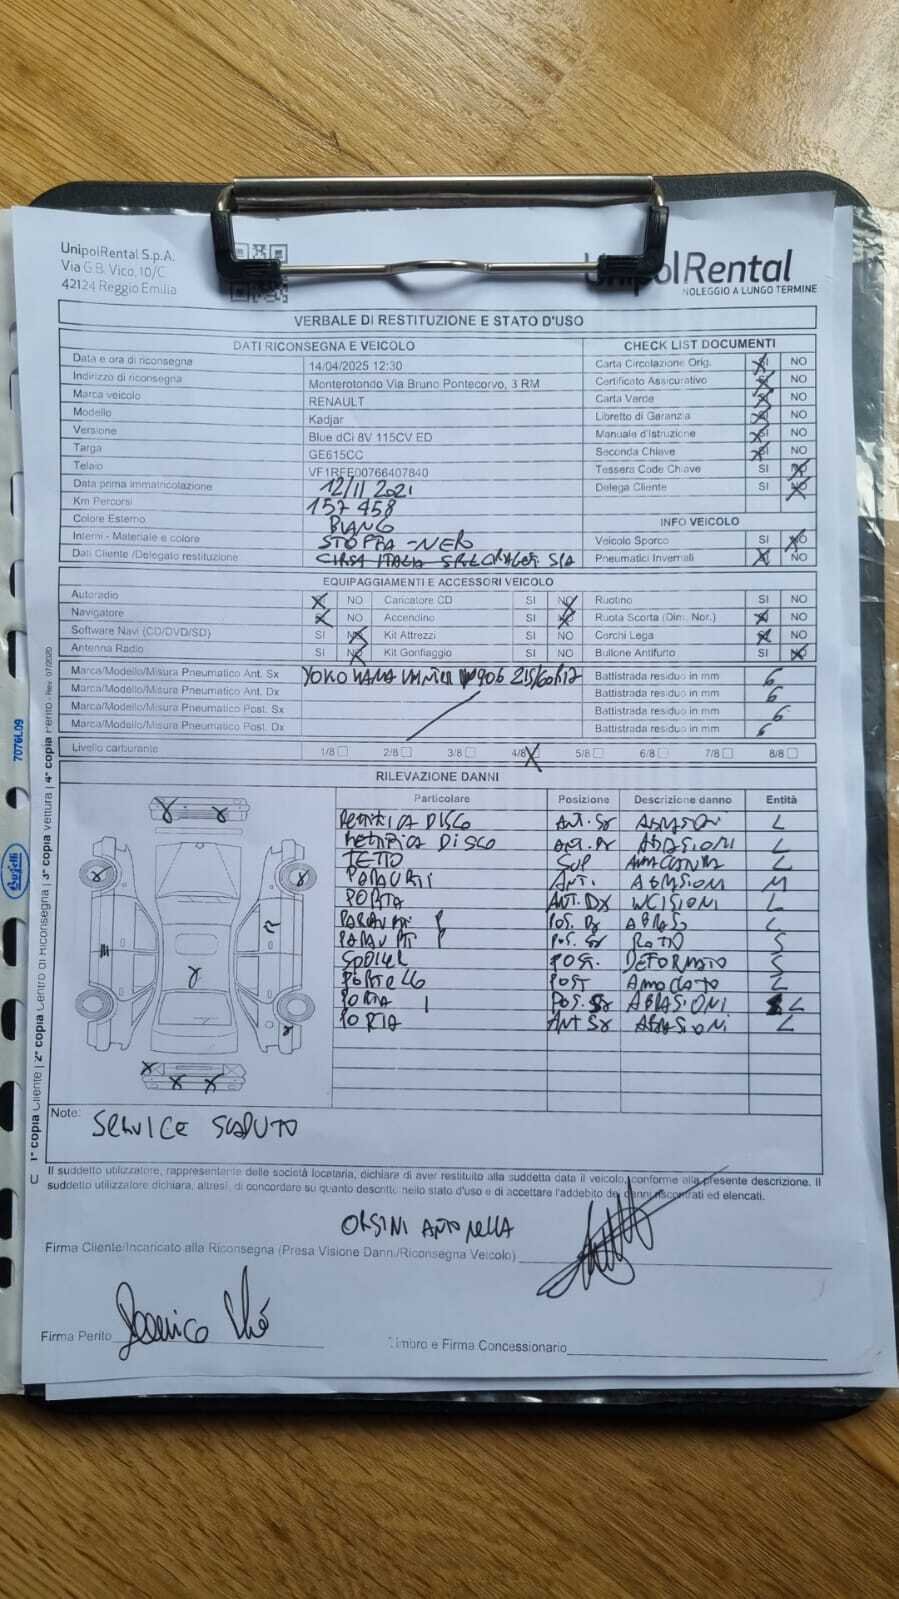 UnipolRental S.p.A.
Via G.B. Vico, 10/C
42124 Reggio Emilia
UnipolRental
NOLEGGIO A LUNGO TERMINE
VERBALE DI RESTITUZIONE E STATO D'USO
DATI RICONSEGNA E VEICOLO
Data e ora di riconsegna 14/04/2025 12:30
Indirizzo di riconsegna Monterotondo Via Bruno Pontecorvo, 3 RM
Marca veicolo RENAULT
Modello Kadjar
Versione Blue dCi 8V 115CV ED
Targa GE615CC
Telaio VF1RFE00766407840
Data prima immatricolazione 12/11/2021
Km Percorsi 157458
Colore Esterno BIANCO
Interni - Materiale e colore STOFFA-NERO
Dati Cliente /Delegato restituzione CIRSA ITALIA SPA
CHECK LIST DOCUMENTI
Carta Circolazione Orig. SI NO
Certificato Assicurativo SI NO
Carta Verde SI NO
Libretto di Garanzia SI NO
Manuale d'Istruzione SI NO
Seconda Chiave SI NO
Tessera Code Chiave SI NO
Delega Cliente SI NO
INFO VEICOLO
Veicolo Sporco SI NO
Pneumatici Invernali SI NO
EQUIPAGGIAMENTI E ACCESSORI VEICOLO
Autoradio SI NO Caricatore CD SI NO Ruotino SI NO
Navigatore SI NO Accendino SI NO Ruota Scorta (Dim. Nor.) SI NO
Software Navi (CD/DVD/SD) SI NO Kit Attrezzi SI NO Cerchi Lega SI NO
Antenna Radio SI NO Kit Gonfiaggio SI NO Bullone Antifurto SI NO
Marca/Modello/Misura Pneumatico Ant. Sx YOKOHAMA WINTER W906 215/60R17 Battistrada residuo in mm 6
Marca/Modello/Misura Pneumatico Ant. Dx Battistrada residuo in mm
Marca/Modello/Misura Pneumatico Post. Sx Battistrada residuo in mm 6
Marca/Modello/Misura Pneumatico Post. Dx Battistrada residuo in mm
Livello carburante 1/8 2/8 3/8 4/8 5/8 6/8 7/8 8/8
RILEVAZIONE DANNI
Particolare Posizione Descrizione danno Entità
DISCO ANT. SX ABRASIONI L
DISCO ANT. DX ABRASIONI L
TETTO SUP L
PARAURTI ANT. ABRASIONI M
PORTA ANT. DX INCISIONI L
PARAURTI P POS. DX ABRAS L
PARAURTI P POS. SX ROTTO S
SPOILER POST. DEFORMATO S
PORTELLO POST AMMACCATO L
PORTA POS. SX ABRASIONI L
PORTA ANT SX ABRASIONI L
Note:
SERVICE SCADUTO
Il suddetto utilizzatore, rappresentante delle società locataria, dichiara di aver restituito alla suddetta data il veicolo, conforme alla presente descrizione. Il
suddetto utilizzatore dichiara, altresì, di concordare su quanto descritto nello stato d'uso e di accettare l'addebito dei danni riscontrati ed elencati.
ORSINI ANTONELLA
Firma Cliente/Incaricato alla Riconsegna (Presa Visione Danni/Riconsegna Veicolo)
Firma Perito
Timbro e Firma Concessionario
1ª copia Cliente | 2ª copia Centro di Riconsegna | 3ª copia Vettura | 4ª copia Perito - Rev. 07/2020
7076L09
Buffetti